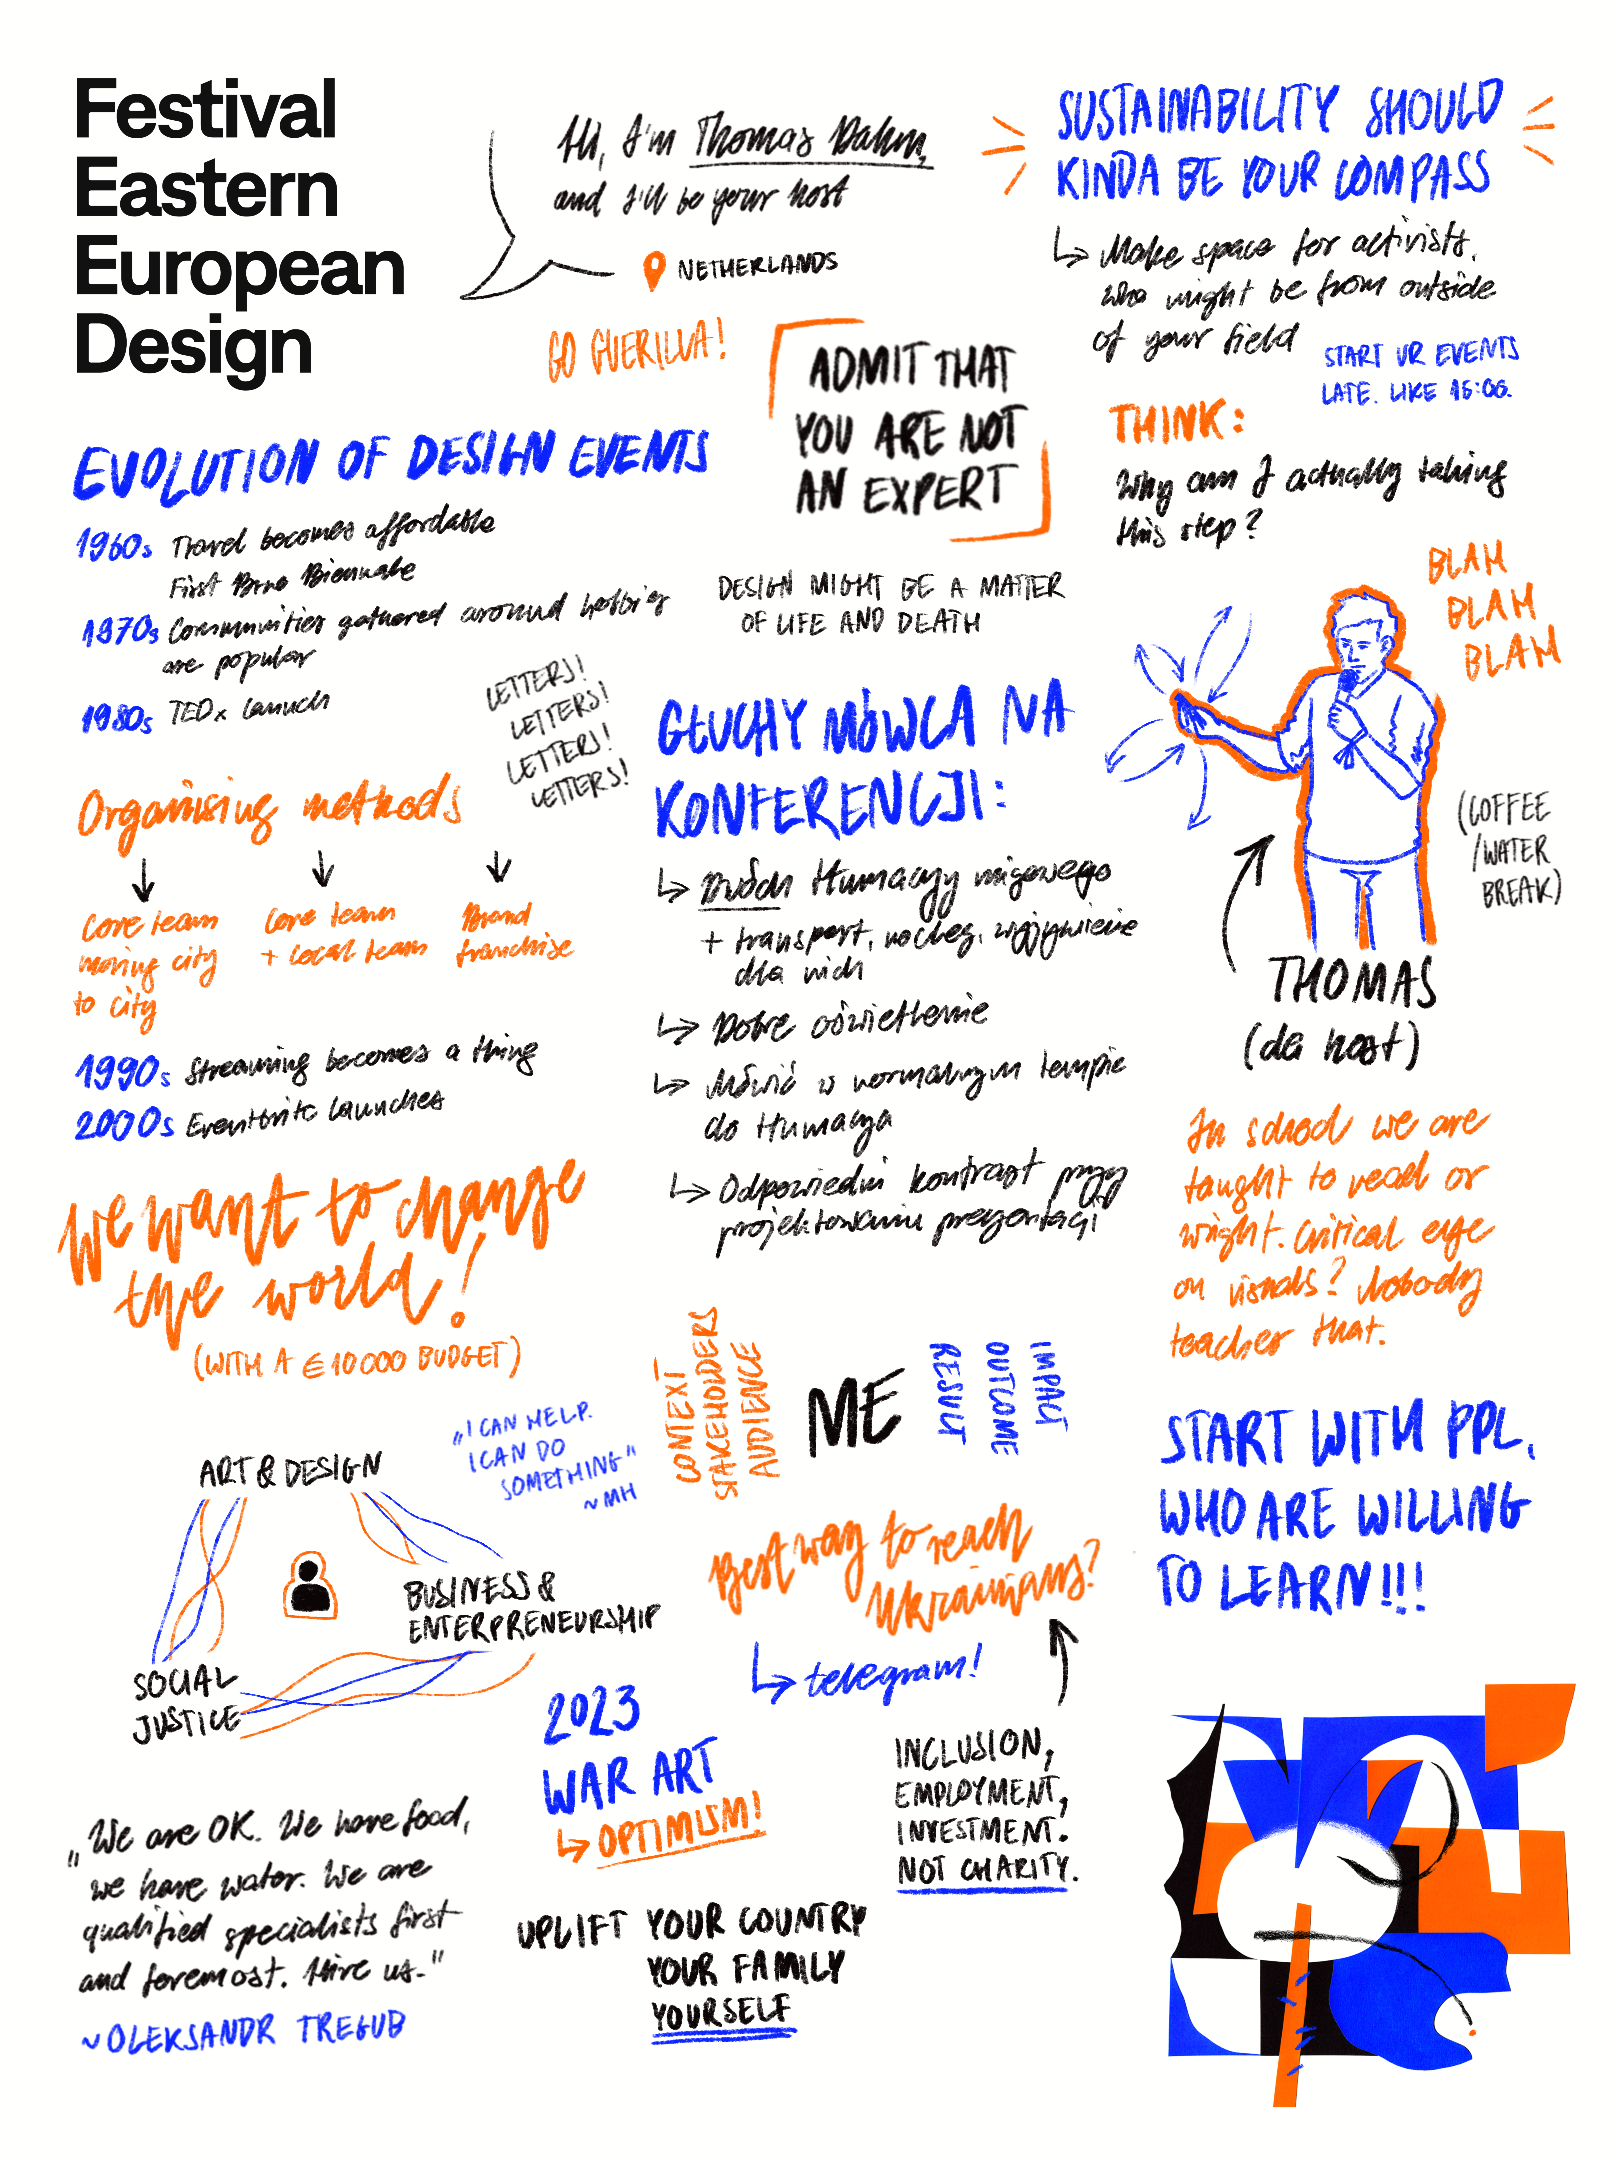 Festival
Eastern
European
Design
Hi, I'm Thomas Dahm,
and I'll be your host
NETHERLANDS
GO GUERILLA!
SUSTAINABILITY SHOULD
KINDA BE YOUR COMPASS
Make space for activists,
who might be from outside
of your field
START UR EVENTS
LATE. LIKE 16:00.
ADMIT THAT
YOU ARE NOT
AN EXPERT
THINK:
Why am I actually taking
this step?
EVOLUTION OF DESIGN EVENTS
1960s Travel becomes affordable
First Brno Biennale
1970s Communities gathered around hobbies
are popular
1980s TEDx launch
LETTERS!
LETTERS!
LETTERS!
LETTERS!
DESIGN MIGHT BE A MATTER
OF LIFE AND DEATH
BLAM
BLAM
BLAM
Organising methods
Core team
moving city
to city
Core team
+ local team
Brand
franchise
1990s Streaming becomes a thing
2000s Eventbrite launches
GŁUCHY MÓWCA NA
KONFERENCJI:
Dwóch tłumaczy migowego
+ transport, nocleg, wyżywienie
dla nich
Dobre oświetlenie
Mówić w normalnym tempie
do tłumacza
Odpowiedni kontrast przy
projektowaniu prezentacji
(COFFEE
/WATER
BREAK)
THOMAS
(da host)
We want to change
the world!
(WITH A €10000 BUDGET)
In school we are
taught to read or
wright. Critical eye
on visuals? Nobody
teacher that.
"I CAN HELP.
I CAN DO
SOMETHING"
~MH
CONTEXT
STAKEHOLDERS
AUDIENCE
ME
RESULT
OUTCOME
IMPACT
START WITH PPL,
WHO ARE WILLING
TO LEARN!!!
ART & DESIGN
BUSINESS &
ENTERPRENEURSHIP
SOCIAL
JUSTICE
Best way to reach
Ukrainians?
telegram!
2023
WAR ART
OPTIMISM!
INCLUSION,
EMPLOYMENT,
INVESTMENT.
NOT CHARITY.
„We are OK. We have food,
we have water. We are
qualified specialists first
and foremost. Hire us."
~OLEKSANDR TREGUB
UPLIFT YOUR COUNTRY
YOUR FAMILY
YOURSELF